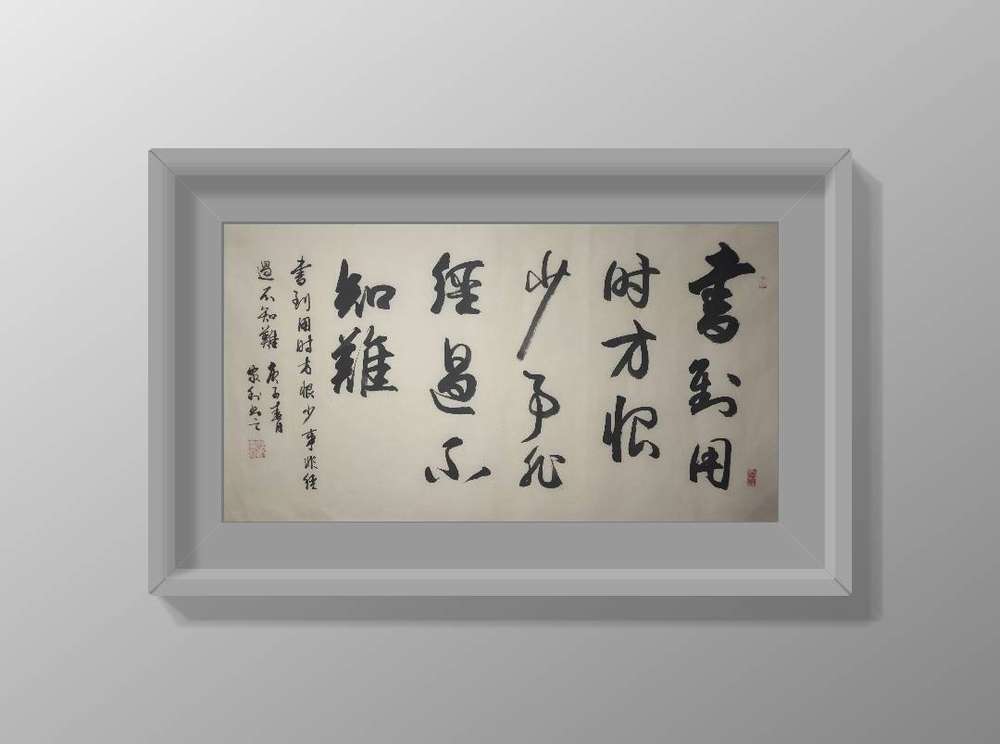 書到用
时方恨
少事非
經過不
知難
書到用时方恨少事非經
過不知難
庚子春月
家和书之